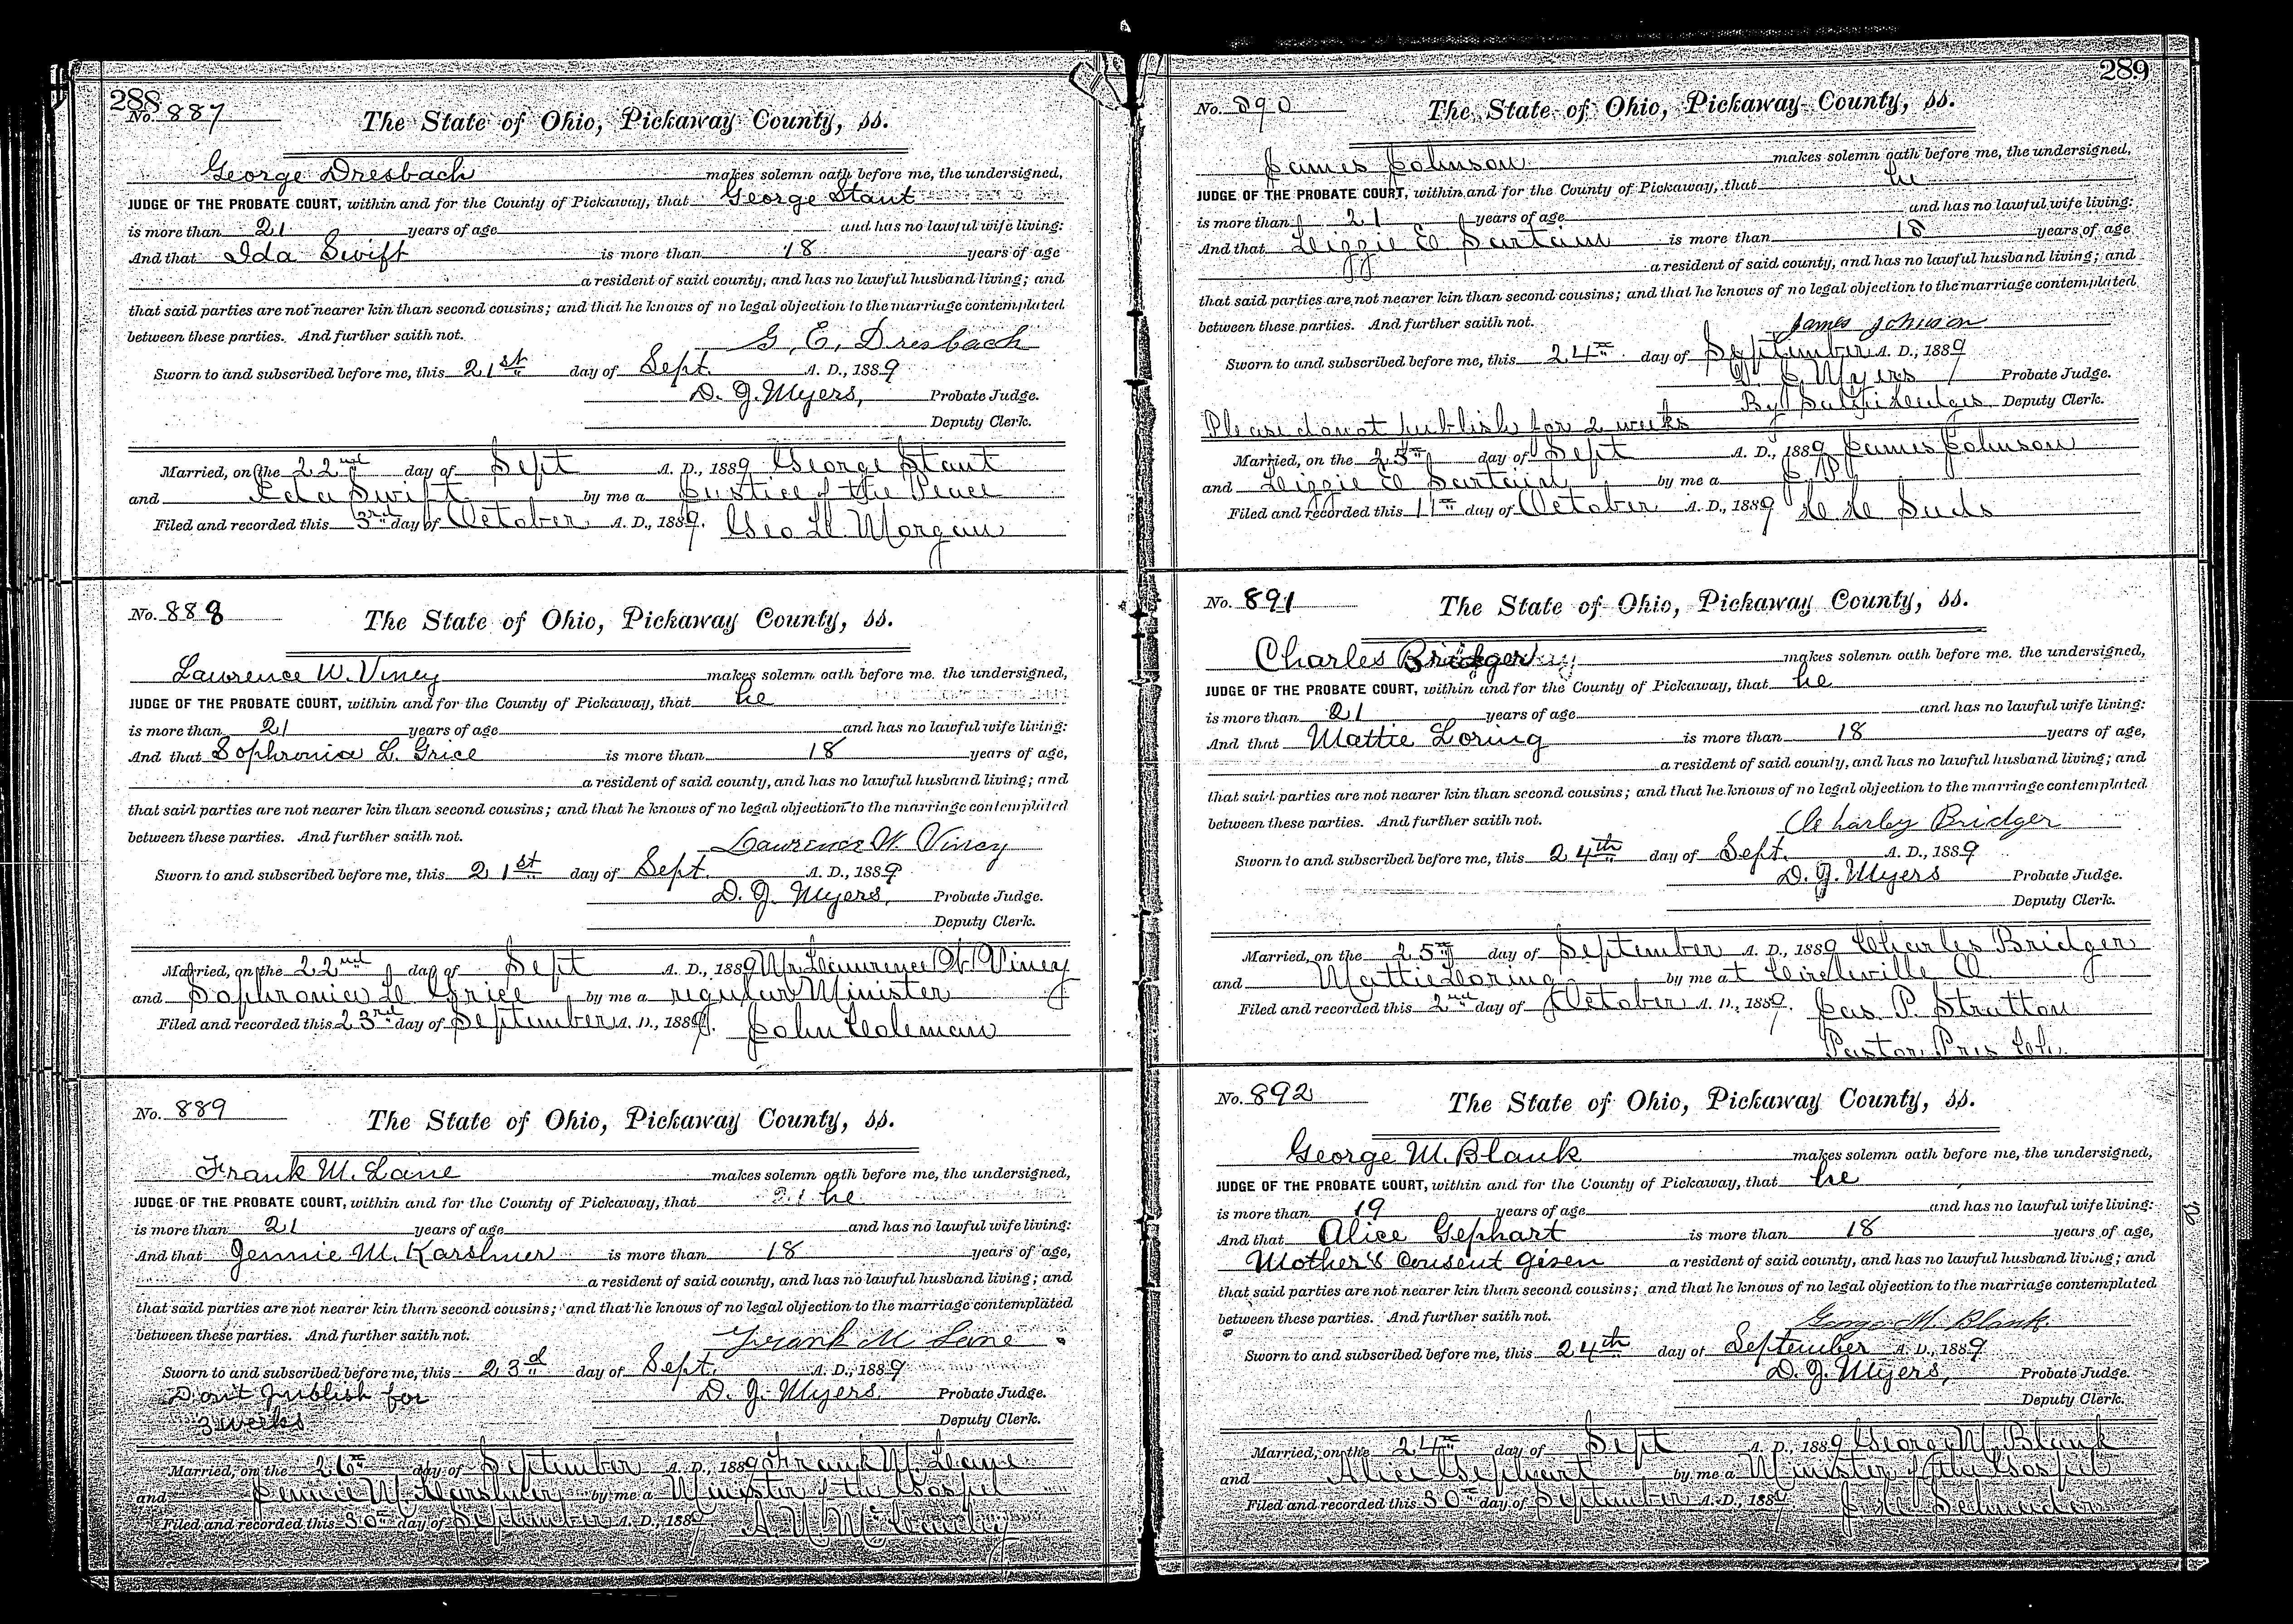 288
No. 887
The State of Ohio, Pickaway County, ss.
George Dresbach makes solemn oath before me, the undersigned,
JUDGE OF THE PROBATE COURT, within and for the County of Pickaway, that George Staut
is more than 21 years of age and has no lawful wife living:
And that Ida Swift is more than 18 years of age
a resident of said county, and has no lawful husband living; and
that said parties are not nearer kin than second cousins; and that he knows of no legal objection to the marriage contemplated
between these parties. And further saith not.
G. E. Dresbach
Sworn to and subscribed before me, this 21st day of Sept. A. D., 1889
D. J. Myers, Probate Judge.
Deputy Clerk.
Married, on the 22nd day of Sept A. D., 1889 George Staut
and Ida Swift by me a Justice of the Peace
Filed and recorded this 3rd day of October A. D., 1889. Geo H. Morgan
No. 888
The State of Ohio, Pickaway County, ss.
Lawrence W. Viney makes solemn oath before me. the undersigned,
JUDGE OF THE PROBATE COURT, within and for the County of Pickaway, that he
is more than 21 years of age and has no lawful wife living:
And that Sophronia L. Grice is more than 18 years of age,
a resident of said county, and has no lawful husband living; and
that said parties are not nearer kin than second cousins; and that he knows of no legal objection to the marriage contemplated
between these parties. And further saith not.
Lawrence W. Viney
Sworn to and subscribed before me, this 21st day of Sept. A. D., 1889
D. J. Myers, Probate Judge.
Deputy Clerk.
Married, on the 22nd day of Sept A. D., 1889 Mr Lawrence W Viney
and Sophronia L Grice by me a regular Minister
Filed and recorded this 23rd day of September A. D., 1889. John Coleman
No. 889
The State of Ohio, Pickaway County, ss.
Frank M. Lane makes solemn oath before me, the undersigned,
JUDGE OF THE PROBATE COURT, within and for the County of Pickaway, that he
is more than 21 years of age and has no lawful wife living:
And that Jennie M. Karshner is more than 18 years of age,
a resident of said county, and has no lawful husband living; and
that said parties are not nearer kin than second cousins; and that he knows of no legal objection to the marriage contemplated
between these parties. And further saith not.
Frank M Lane
Sworn to and subscribed before me, this 23d day of Sept. A. D., 1889
D. J. Myers Probate Judge.
Don't Publish for
3 weeks
Deputy Clerk.
Married, on the 26th day of September A. D., 1889 Frank M. Lane
and Jennie M. Karshner by me a Minister of the Gospel
Filed and recorded this 30th day of September A. D., 1889
289
No. 890
The State of Ohio, Pickaway County, ss.
James Johnson makes solemn oath before me, the undersigned,
JUDGE OF THE PROBATE COURT, within and for the County of Pickaway, that he
is more than 21 years of age and has no lawful wife living:
And that Lizzie E Sartain is more than 18 years of age
a resident of said county, and has no lawful husband living; and
that said parties are not nearer kin than second cousins; and that he knows of no legal objection to the marriage contemplated
between these parties. And further saith not.
James Johnson
Sworn to and subscribed before me, this 24th day of September A. D., 1889
D. J. Myers Probate Judge.
By Deputy Clerk.
Please do not publish for 2 weeks
Married, on the 25th day of Sept A. D., 1889 James Johnson
and Lizzie E Sartain by me a J. P.
Filed and recorded this 11th day of October A. D., 1889
No. 891
The State of Ohio, Pickaway County, ss.
Charles Bridger makes solemn oath before me. the undersigned,
JUDGE OF THE PROBATE COURT, within and for the County of Pickaway, that he
is more than 21 years of age and has no lawful wife living:
And that Mattie Loring is more than 18 years of age,
a resident of said county, and has no lawful husband living; and
that said parties are not nearer kin than second cousins; and that he knows of no legal objection to the marriage contemplated
between these parties. And further saith not.
Charley Bridger
Sworn to and subscribed before me, this 24th day of Sept. A. D., 1889
D. J. Myers Probate Judge.
Deputy Clerk.
Married, on the 25th day of September A. D., 1889 Charles Bridger
and Mattie Loring by me at Circleville O.
Filed and recorded this 2nd day of October A. D., 1889. Jas P. Stratton
Pastor Pres Ch.
No. 892
The State of Ohio, Pickaway County, ss.
George M. Blank makes solemn oath before me, the undersigned,
JUDGE OF THE PROBATE COURT, within and for the County of Pickaway, that he
is more than 19 years of age and has no lawful wife living:
And that Alice Gephart is more than 18 years of age,
Mother's Consent given a resident of said county, and has no lawful husband living; and
that said parties are not nearer kin than second cousins; and that he knows of no legal objection to the marriage contemplated
between these parties. And further saith not.
George M. Blank
Sworn to and subscribed before me, this 24th day of September A. D., 1889
D. J. Myers, Probate Judge.
Deputy Clerk.
Married, on the 24th day of Sept A. D., 1889 George M. Blank
and Alice Gephart by me a Minister of the Gospel
Filed and recorded this 30th day of September A. D., 1889